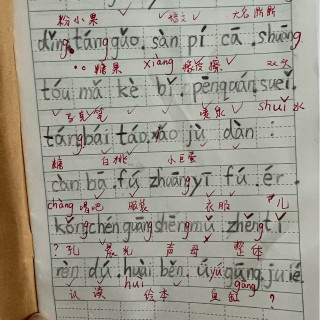 粉小果 语文 大名鼎鼎
dǐng táng guǒ. sàn pí cā. shuāng
糖果 xiàng 橡皮擦 双头
tóu mǎ kè bǐ. pēn quán sueǐ.
马克笔 喷泉 shuǐ 水
táng bái táo. xiǎo jù dàn :
糖 白桃 小巨蛋
càn bā. fú zhuāng yī fú. ér.
chàng 唱吧 服装 衣服 儿
kǒng chén guāng shēng mǔ. zhěng tǐ
? 孔 晨光 声母 整体
rèn dú. huài běn. ú yú gūng ju ié.
认读 huì 绘本 鱼缸 gāng ?